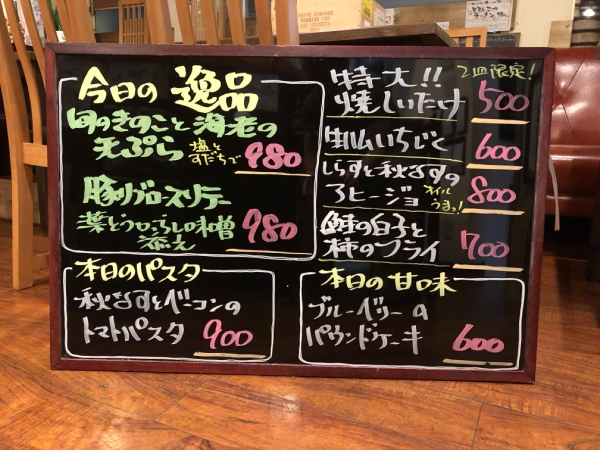 今日の 逸品
旬のきのこと海老の
天ぷら 塩と
すだちで 980
豚リブローススリテー
葉とうがらし味噌 980
添え
本日のパスタ
秋なすとベーコンの
トマトパスタ 900
特大!! 2皿限定!
焼しいたけ 500
生ハムいちじく 600
しらすと秋なすの
アヒージョ オイル
うまっ! 800
鮭の白子と
柿のフライ 700
本日の甘味
ブルーベリーの
パウンドケーキ 600